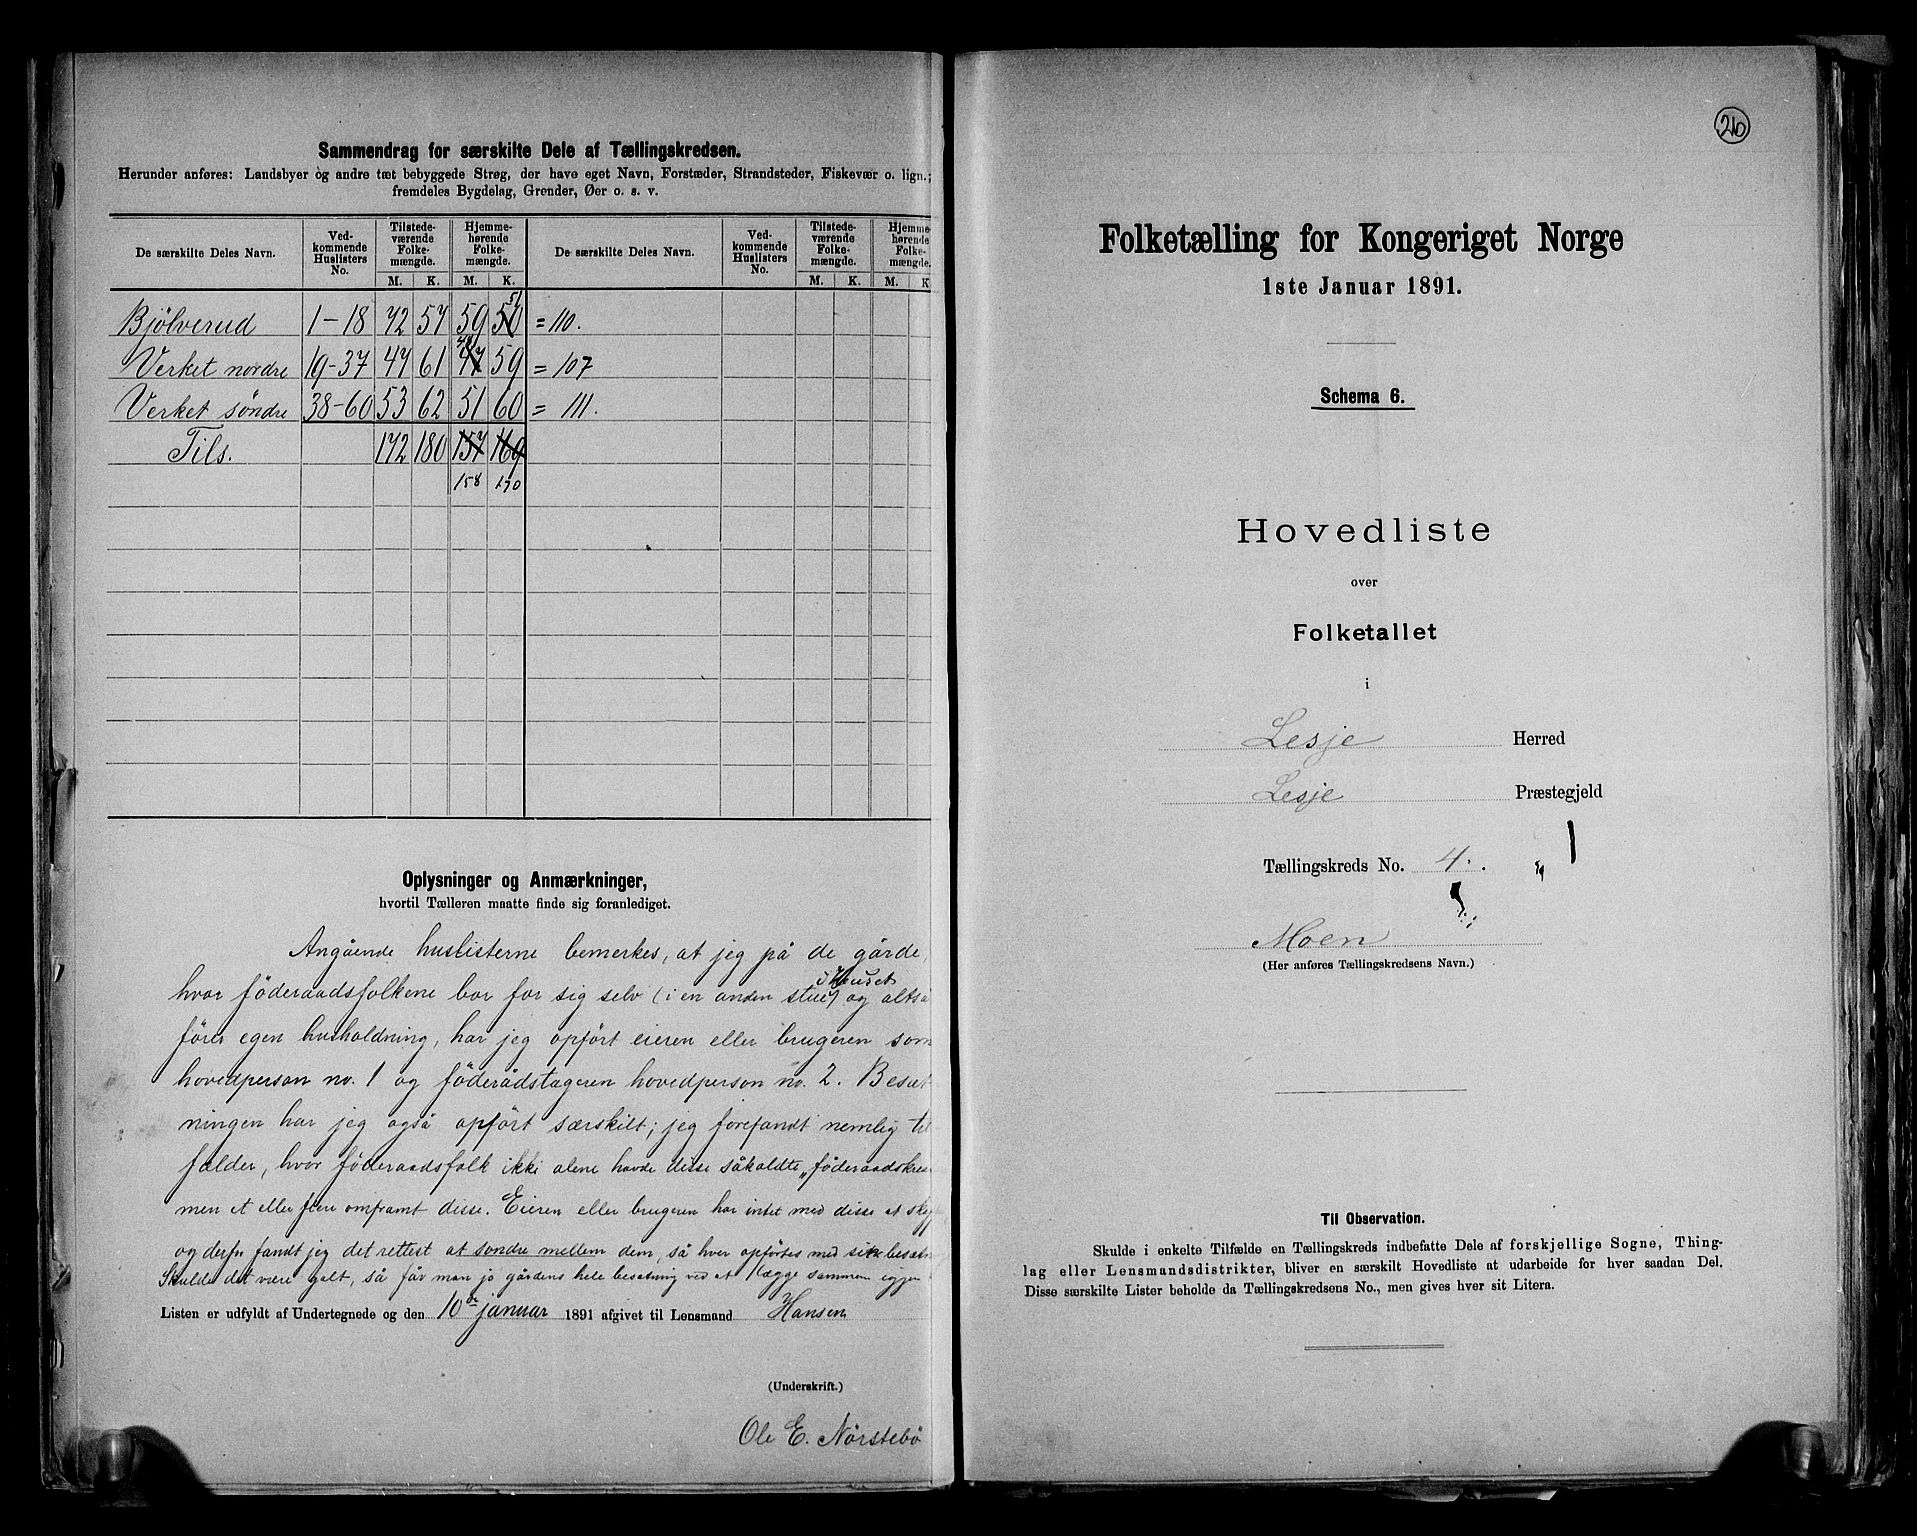 Sammendrag for særskilte Dele af Tællingskredsen.
Herunder anføres: Landsbyer og andre tæt bebyggede Strøg, der have eget Navn, Forstæder, Strandsteder, Fiskevær o. lign.;
fremdeles Bygdelag, Grender, Øer o. s. v.
De særskilte Deles Navn. Ved-kommende Huslisters No. Tilstede-værende Folke-mængde. Hjemme-hørende Folke-mængde. De særskilte Deles Navn. Ved-kommende Huslisters No. Tilstede-værende Folke-mængde. Hjemme-hørende Folke-mængde.
M. K. M. K. M. K. M. K
51
Bjölverud 1-18 72 57 59 50 = 110.
48
Verket nordre 19-37 47 61 47 59 = 107
Verket söndre 38-60 53 62 51 60 = 111.
Tils. 172 180 157 169
158 170
Oplysninger og Anmærkninger,
hvortil Tælleren maatte finde sig foranlediget.
Angående huslisterne bemerkes, at jeg på de gårde,
i Huset
hvor föderaadsfolkene bor for sig selv (i en anden stue) og altså
fører egen husholdning, har jeg opført eieren eller brugeren som
hovedperson no. 1 og föderådstageren hovedperson no. 2. Besæt
ningen har jeg også opført særskilt; jeg forefandt nemlig til
fælder, hvor föderaadsfolk ikke alene havde disse såkaldte „föderaads
men et eller flere omframt disse. Eieren eller brugeren har intet med disse at
og derfor fandt jeg det rettest at sondre mellem dem, så hver opførtes med sin
Skulde det være galt, så får man jo gårdens hele besætning ved at lægge sammen igjen
Listen er udfyldt af Undertegnede og den 10de januar 1891 afgivet til Lensmand Hansen
(Underskrift.)
Ole E. Nörstebö
26
Folketælling for Kongeriget Norge
1ste Januar 1891.
Schema 6.
Hovedliste
over
Folketallet
i
Lesje Herred
Lesje Præstegjeld
Tællingskreds No. 4.
Moen
(Her anføres Tællingskredsens Navn.)
Til Observation.
Skulde i enkelte Tilfælde en Tællingskreds indbefatte Dele af forskjellige Sogne, Thing-
lag eller Lensmandsdistrikter, bliver en særskilt Hovedliste at udarbeide for hver saadan Del.
Disse særskilte Lister beholde da Tællingskredsens No., men gives hver sit Litera.